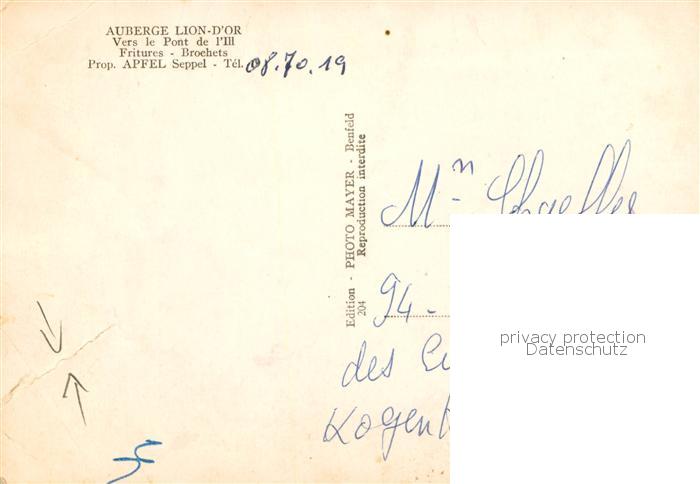 AUBERGE LION-D'OR
Vers le Pont de l'Ill
Fritures - Brochets
Prop. APFEL Seppel - Tél. 08.70.19
Edition - PHOTO MAYER - Benfeld
204 Reproduction interdite
94 -
des
privacy protection
Datenschutz